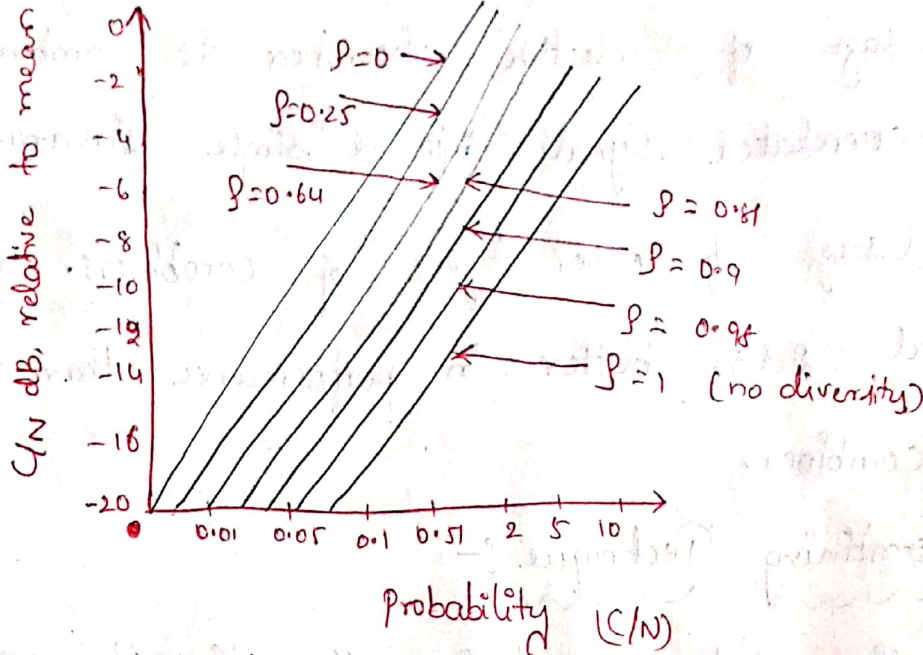 C/N dB, relative to mean
0
-2
-4
-6
-8
-10
-12
-14
-16
-20
ρ=0
ρ=0.25
ρ=0.64
ρ = 0.81
ρ = 0.9
ρ = 0.95
ρ=1 (no diversity)
0 0.01 0.05 0.1 0.51 2 5 10
Probability (C/N)